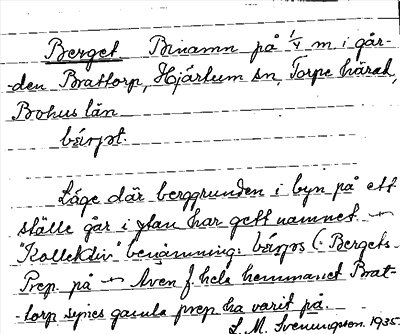 Berget Binamn på 1/4 m. i går-
den Brattorp, Hjärtum sn, Torpe härad,
Bohus län
bärjət.
Läge där berggrunden i byn på ett
ställe går i ytan har gett namnet. —
"Kollektiv" benämning: bärjəs (: Bergets.
Prep. på — Även f. hela hemmanet Brat-
torp synes gamla prep ha varit på.
S. M. Svenungson. 1935